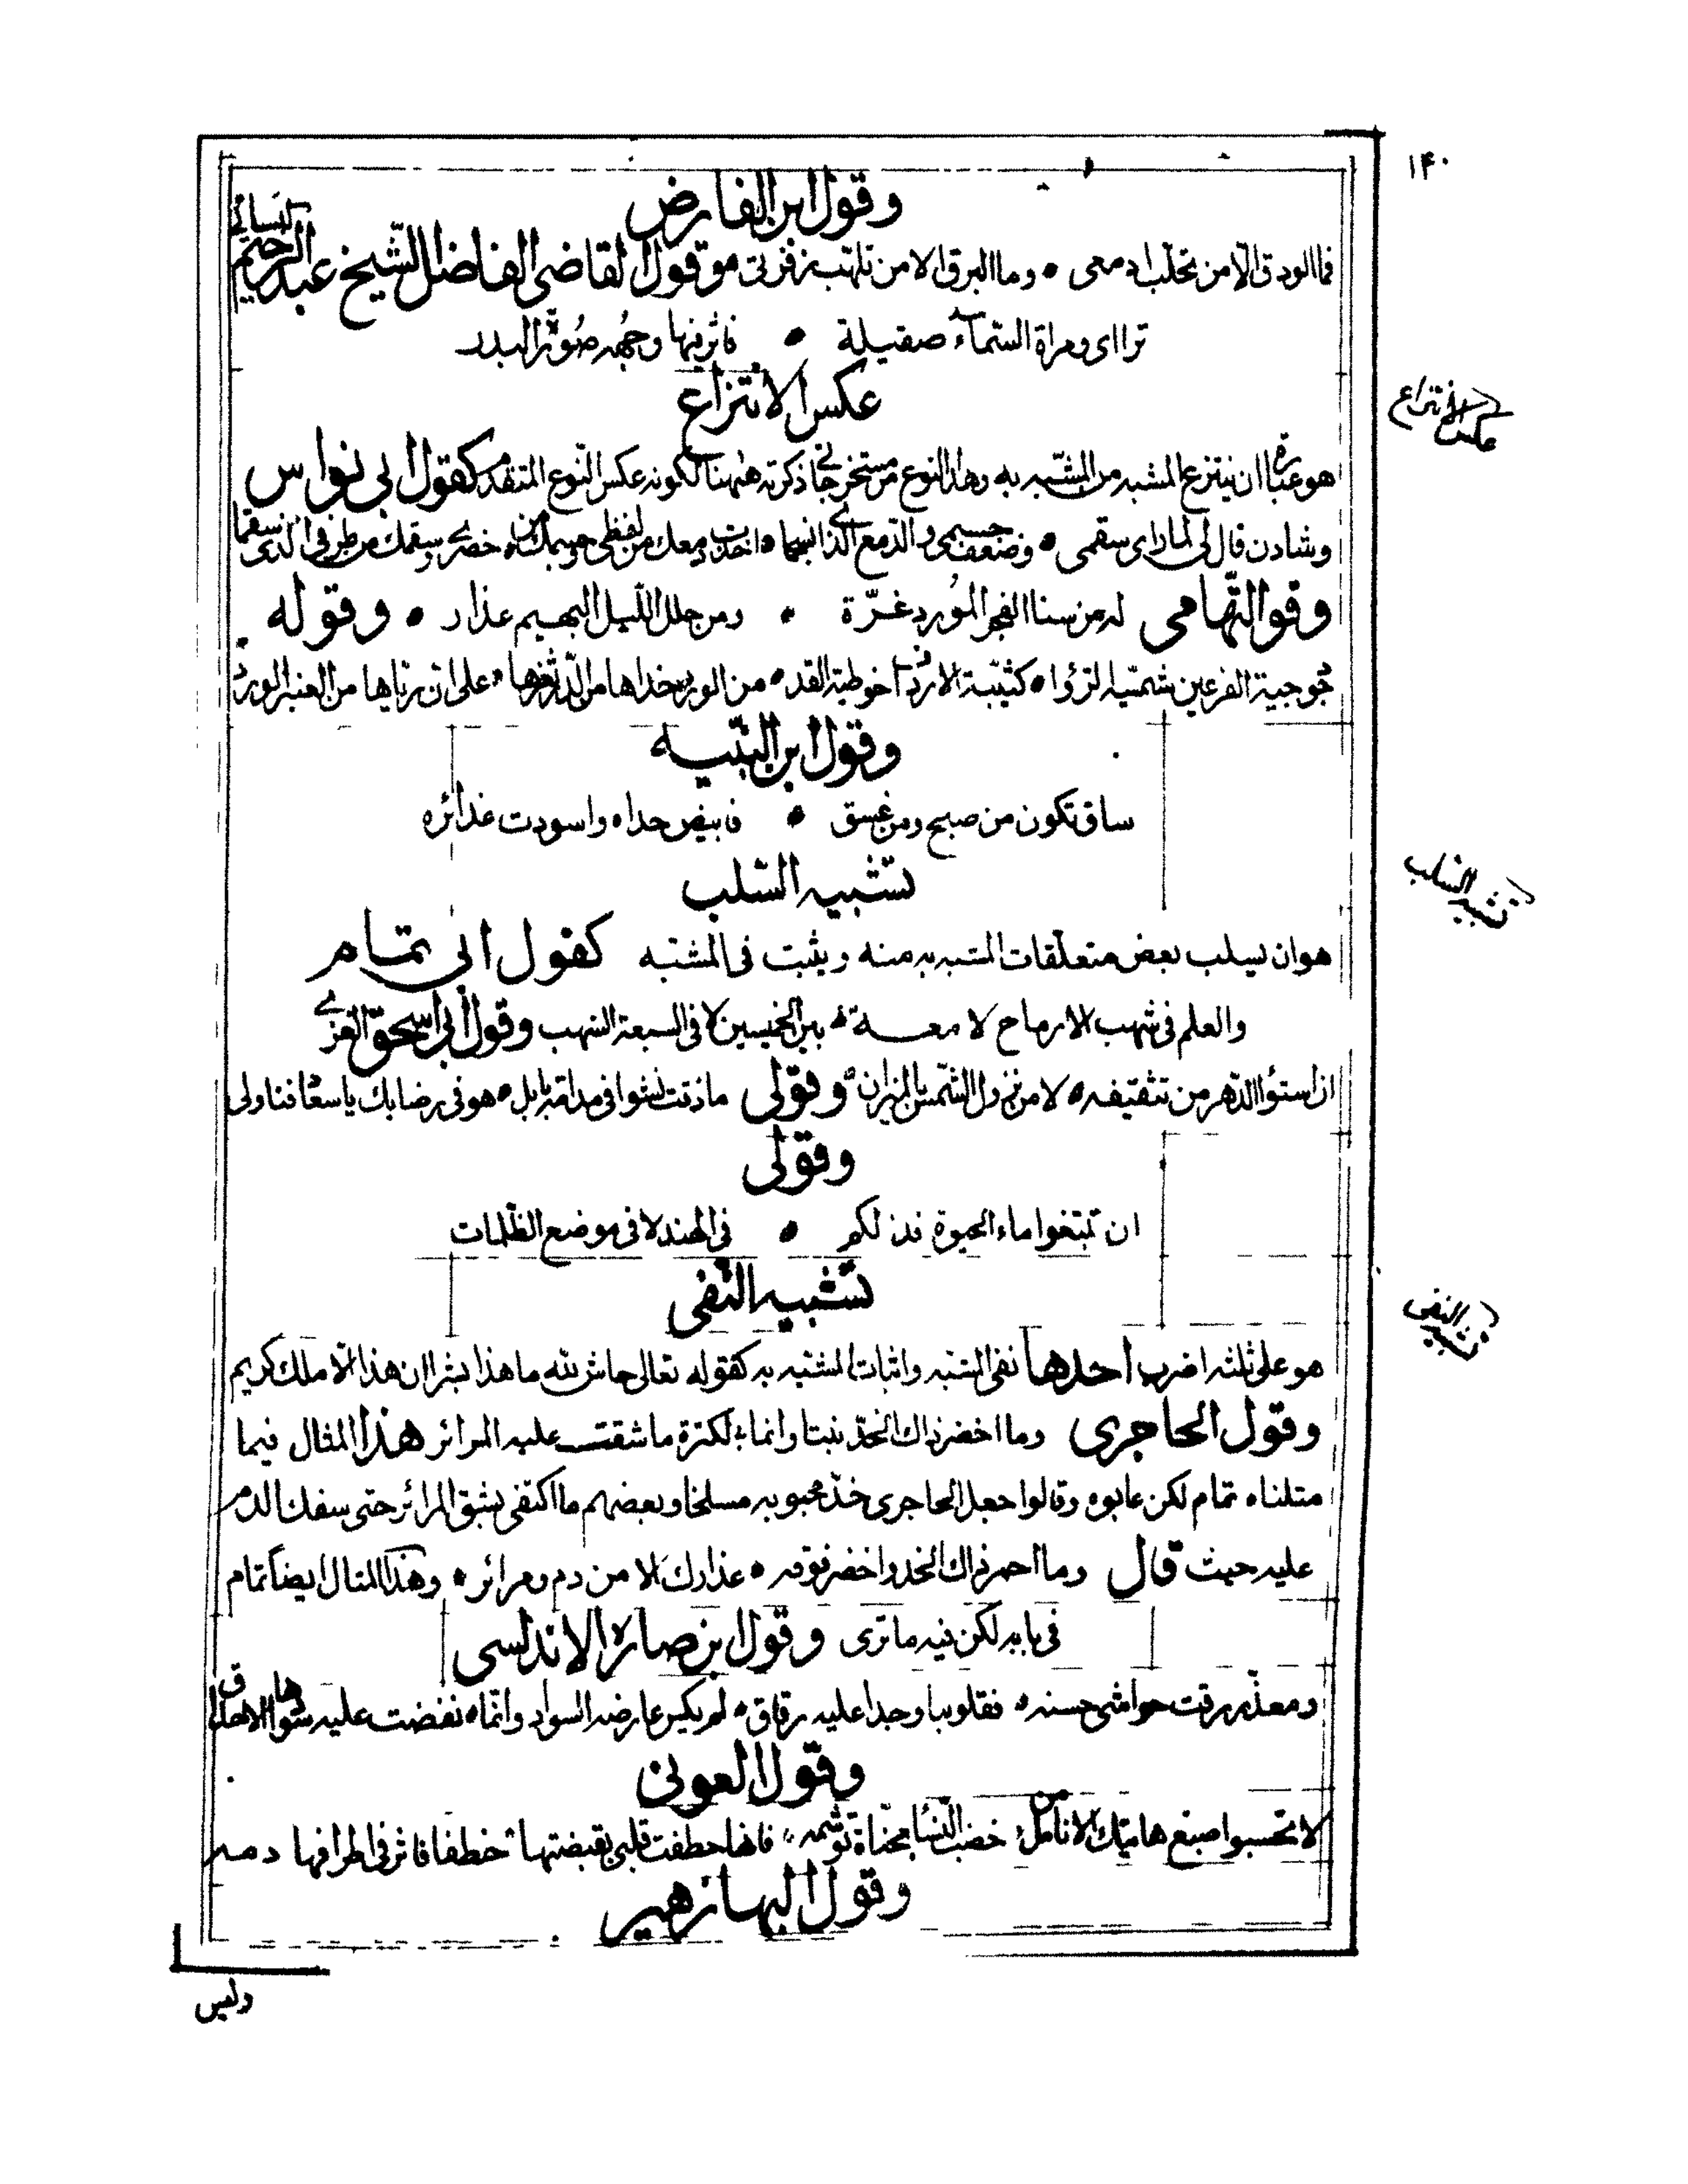 ۱۴۰
وقول ابن الفارض
فما الودق الّا من تحلّب ادمعى ۰ وما البرق الا من تلهّب زفرتى وقول القاضى الفاضل الشّيخ عبد الرحيم البيسانى
تراأى ومراة السّماء صقيلة ۰ فاثر فيها وجهه صورة البدر
عكس الانتزاع
عكس الانتزاع
هو عبارة ان ينتزع المشبه من المشبّه به وهذا النوع من مستخرجاتى ذكرته ههنا لكونه عكس النّوع المتقدم كقول ابى نواس
وشادن قال لى لما راى سقمى ۰ وضعف جسمى والدّمع الّذى انسجما ۰ اخذت دمعك من لفظى وجسمك من ۰ خصرى وسقمك من طرفى الذى سقما
وقول التّهامى له من سنا الفجر المورد غرّة ۰ ومن حلل اللّيل البهيم عذار ۰ وقوله
شمسيه كثيبة الارداف خوطية القد ۰ من الورد خداها من الدّر ثغرها ۰ على ان رياها من العنبر الورد
وقول ابن النّبيه
ساق تكون من صبح ومن غسق ۰ فابيض خداه واسودت غدائره
تشبيه السّلب
تشبيه السّلب
هو ان يسلب بعض متعلّقات المشبه به منه ويثبت فى المشبّه كقول ابى تمام
والعلم فى شهب الارماح لامعة ۰ بين الخميسين لا فى السبعة الشهب وقول ابى اسحق الغزى
ان استواء الدّهر من تثقيفه ۰ لا من نزول الشّمس بالميزان ۰ وقولى ما ذقت نشوا فى مدامة بابل ۰ هو فى رضابك يا سعاد فناولى
وقولى
ان تبتغوا ماء الحيوة فذلكم ۰ فى الهند لا فى موضع الظّلمات
تشبيه النّفى
تشبيه النفى
هو على ثلثه اضرب احدها نفى المشبّه واثبات المشبّه به كقوله تعالى حاش لله ما هذا بشرا ان هذا الّا ملك كريم
وقول الحاجرى وما اخضر ذاك الخدّ نبتا وانما ۰ لكثرة ما شقت عليه المرائر هذا المثال فيما
مثلناه تمام لكن عابوه وقالوا جعل الحاجرى خدّ محبوبه مسلخا وبعضهم ما اكتفى بشق المرائر حتى سفك الدم
عليه حيث قال وما احمر ذاك الخد واخضر فوقه ۰ عذارك الا من دم ومرائر ۰ وهذا المثال ايضا تمام
فى بابه لكن فيه ما ترى وقول ابن صارة الاندلسى
ومعذّر رقت حواشى حسنه ۰ فقلوبنا وجدا عليه رقاق ۰ لم يكس عارضه السواد وانّما ۰ نفضت عليه سوادها الاحداق
وقول العونى
لا تحسبوا صبغ هاتيك الانامل من ۰ خضب النّسا بحناة توشمه ۰ فانها خطفت قلبى بقبضتها ۰ خطفا فاثر فى اطرافها دمه
وقول البها زهير
وليس